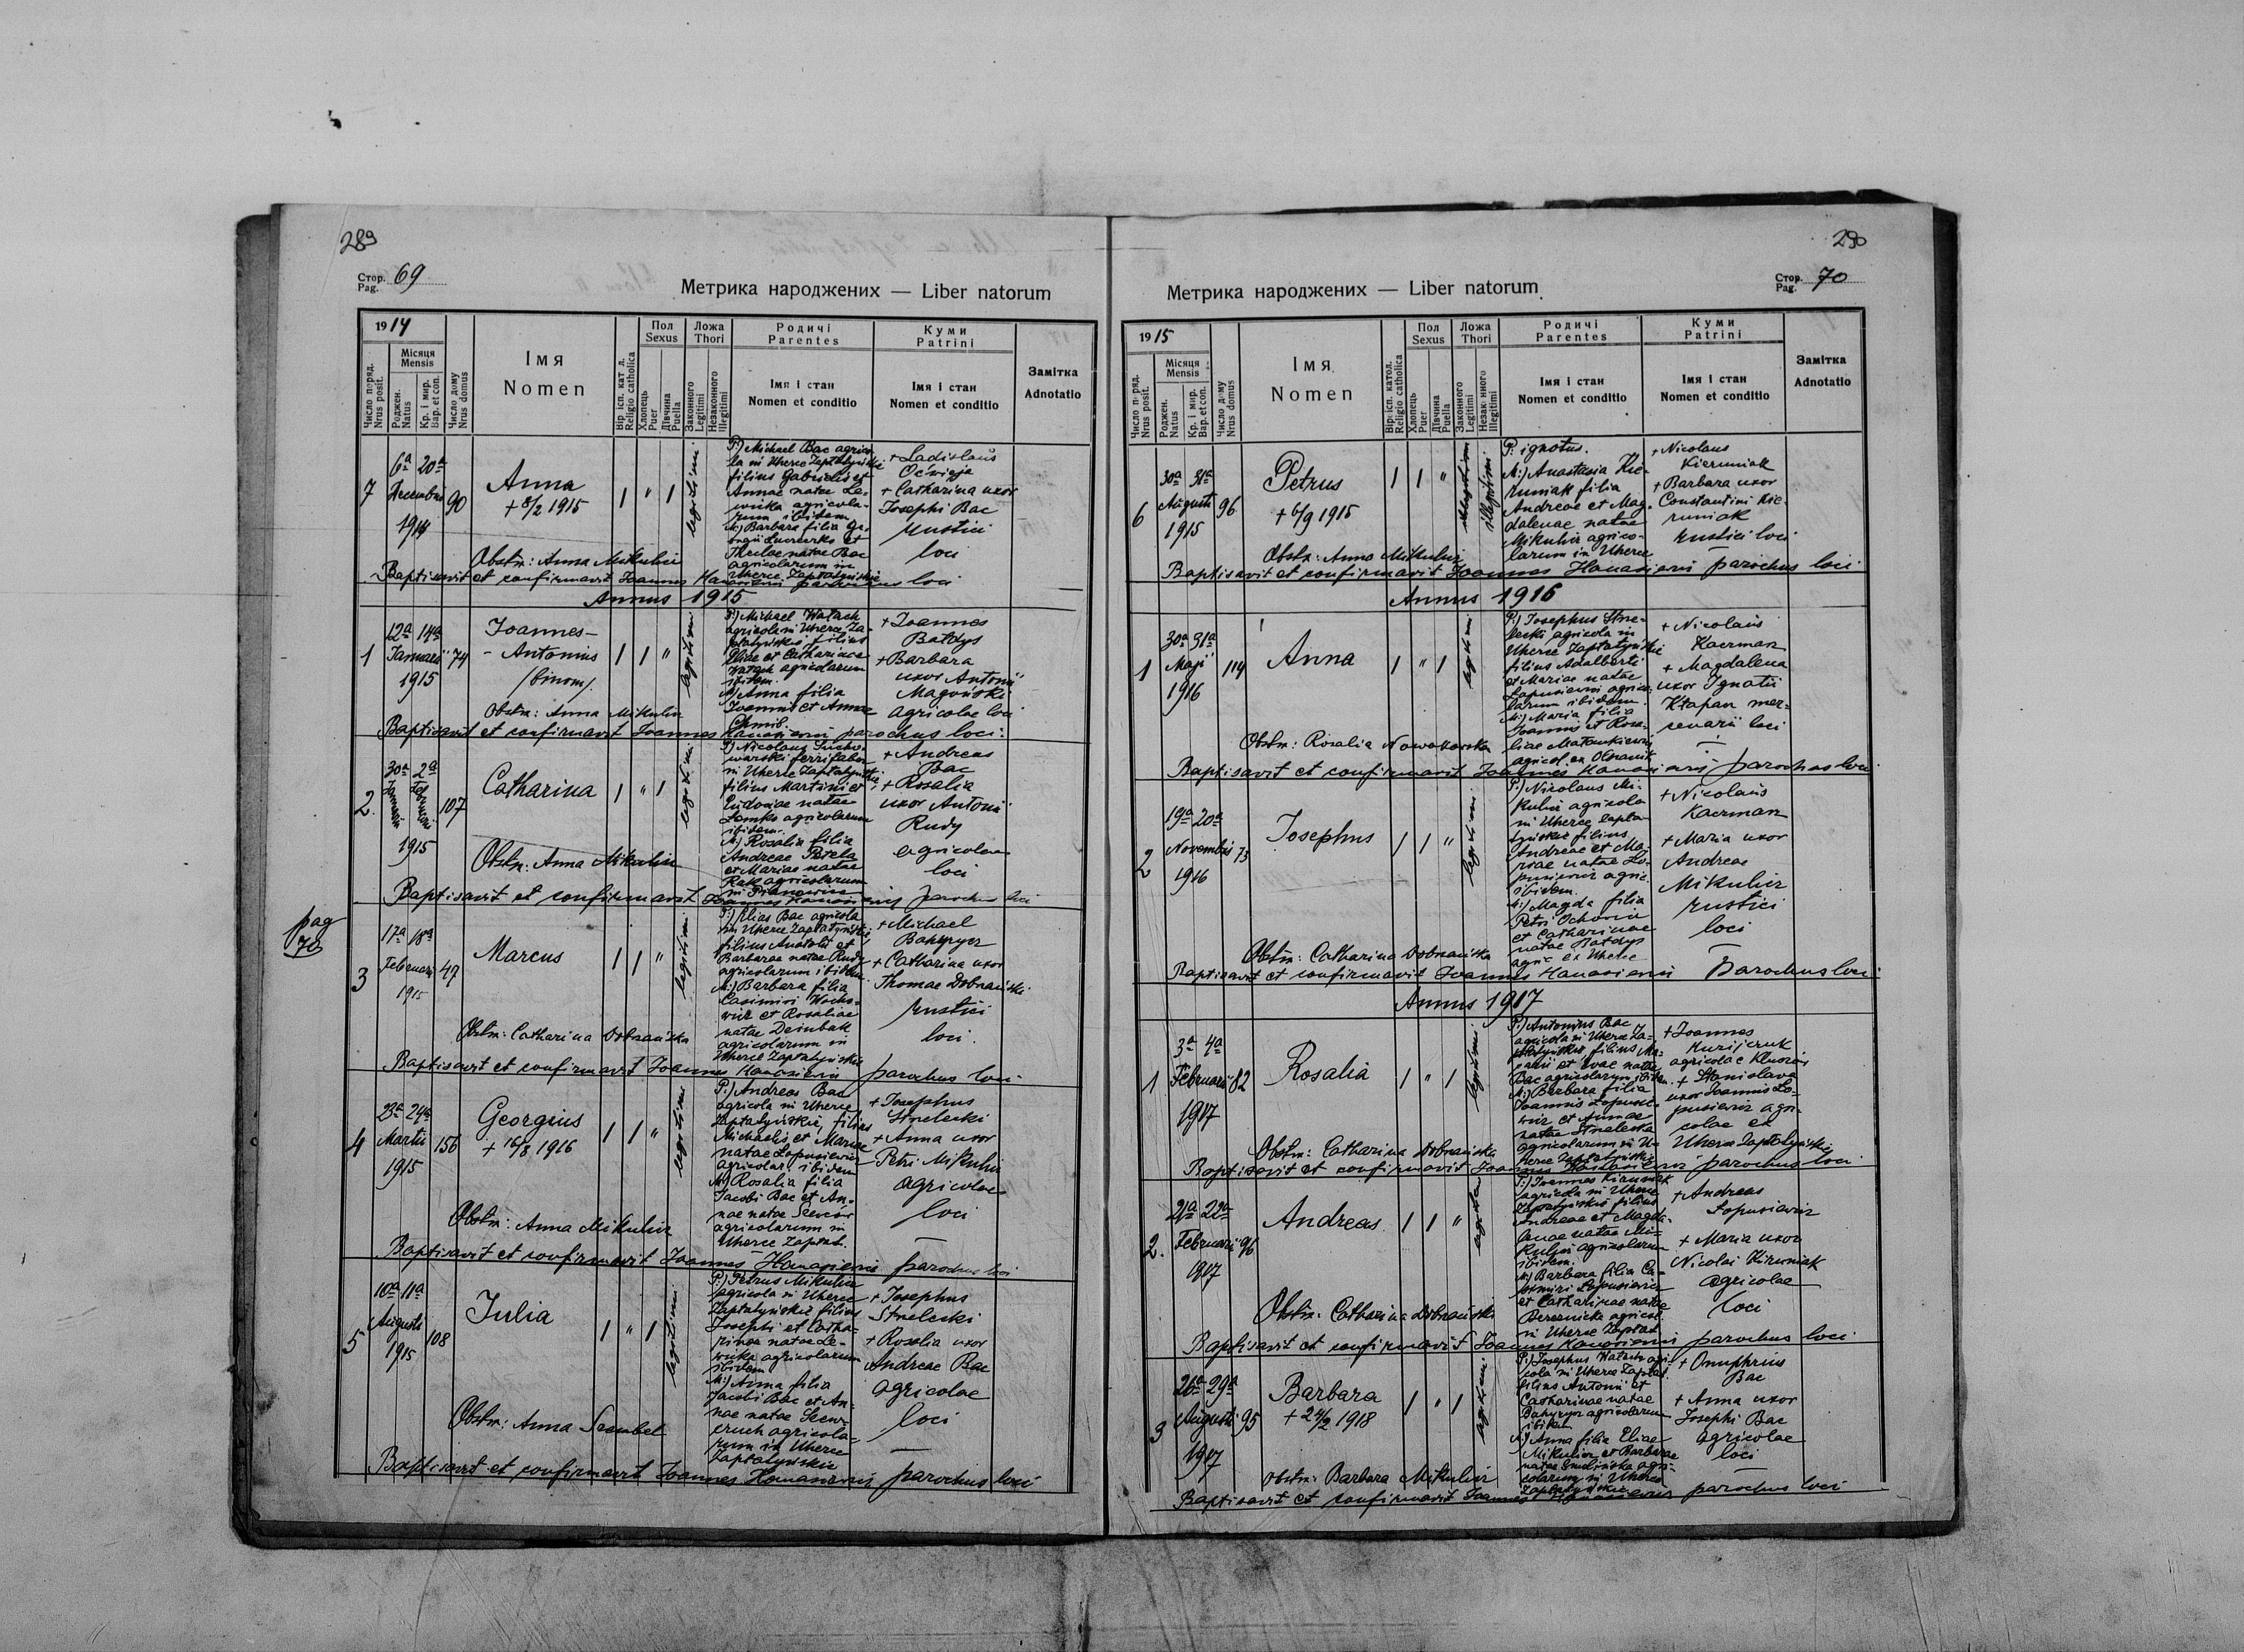 289
Стор. Pag. 69
Метрика народжених — Liber natorum
1914
Число поряд. Nrus posit.
Місяця Mensis
Роджен. Natus
Кр. і мир. Bap. et con.
Число дому Nrus domus
Імя
Nomen
Вір ісп. кат л. Religio catholica
Пол Sexus
Хлопець Puer
Дівчина Puella
Ложа Thori
Законного Legitimi
Незаконного Illegitimi
Родичі
Parentes
Імя і стан
Nomen et conditio
Куми
Patrini
Імя і стан
Nomen et conditio
Замітка
Adnotatio
7
6a 20a
Decembris
1914
90
Anna
+ 8/2 1915
1 " 1
legitimi
P:) Michael Bac agrico-
la in Uherce Zapłatyńskie
filius Gabrielis et
Annae natae Le-
wicka agricola-
rum ibidem
M:) Barbara filia
et
natae Bac
agricolarum in
Uherce Zapłatyńskie
+ Ladislaus
+ Catharina uxor
Josephi Bac
rustici
loci
Obstr: Anna Mikulicz
Baptisavit et confirmavit Joannes parochus loci
Annus 1915
1
12a 14a
Januarii
1915
74
Joannes –
– Antonius
/binom/.
1 1 "
legitimi
P:) Michael Wałach
agricola in Uherce Za-
płatyńskie, filius
Eliae et Catharinae
agricolarum
ibidem.
M:) Anna filia
Joannis et Annae
+ Joannes
Bałdys
+ Barbara
uxor Antonii
agricolae loci
Obstr: Anna Mikulicz
Baptisavit et confirmavit Joannes parochus loci.
2.
30a 2a
Januarii Februarii
1915
107
Catharina
1 " 1
legitimi
P:) Nicolaus
in Uherce Zapłatyńskie,
filius Martini et
Eudoxiae natae
agricolarum
ibidem.
M:) Rosalia filia
Andreae
et Mariae natae
Rak agricolarum
in
+ Andreas
Bac
+ Rosalia
uxor Antonii
Rudy
agricolae
loci
Obstr: Anna Mikulicz
Baptisavit et confirmavit Joannes parochus loci
pag
70
3
17a 18a
Februarii
1915
47
Marcus
1 1 "
legitimi
P:) Elias Bac agricola
in Uherce Zapłatyńskie,
filius Anatolii et
Barbarae natae Rudy
agricolarum ibidem
M:) Barbara filia
Casimiri
et Rosaliae
natae
agricolarum in
Uherce Zapłatyńskie
+ Michael
+ Catharina uxor
Thomae Dobrański
rustici
loci.
Obstr: Catharina Dobrańska
Baptisavit et confirmavit Joannes parochus loci
4
23a 24a
Martii
1915
156
Georgius
+ 16/8 1916
1 1 "
legitimi
P:) Andreas Bac
agricola in Uherce
Zapłatyńskie, filius
Michaelis et Mariae
natae Łopusiewicz
agricolar. ibidem
M:) Rosalia filia
Jacobi Bac et An-
nae natae
agricolarum in
Uherce Zapłat.
+ Josephus
Strelecki
+ Anna uxor
Petri Mikulicz
agricolae
loci
Obstr: Anna Mikulicz
Baptisavit et confirmavit Joannes parochus loci
5
10a 11a
Augusti
1915
108
Julia
1 " 1
legitimi
P:) Petrus Mikulicz
agricola in Uherce
Zapłatyńskie filius
Josephi et Catha-
rinae natae Le-
wicka agricolarum
ibidem
M:) Anna filia
Jacobi Bac et An-
nae natae
agricola-
rum in Uherce
Zapłatyńskie
+ Josephus
Strelecki
+ Rosalia uxor
Andreae Bac
agricolae
loci
Obstr: Anna
Baptisavit et confirmavit Joannes parochus loci
290
Метрика народжених — Liber natorum
Стор. Pag. 70
1915
Число поряд. Nrus posit.
Місяця Mensis
Роджен. Natus
Кр. і мир. Bap. et con.
Число дому Nrus domus
Імя
Nomen
Вір ісп. катол. Religio catholica
Пол Sexus
Хлопець Puer
Дівчина Puella
Ложа Thori
Законного Legitimi
Незаконного Illegitimi
Родичі
Parentes
Імя і стан
Nomen et conditio
Куми
Patrini
Імя і стан
Nomen et conditio
Замітка
Adnotatio
6
30a 31a
Augusti
1915
96
Petrus
+ 6/9 1915
1 1 "
illegitimi
P: ignotus.
M:) Anastasia Kie-
runiak filia
Andreae et Mag-
dalenae natae
Mikulicz agrico-
larum in Uherce
+ Nicolaus
Kieruniak
+ Barbara uxor
Constantini Kie-
runiak
rustici loci
Obstr: Anna Mikulicz
Baptisavit et confirmavit Joannes parochus loci
Annus 1916
1
30a 31a
Maji
1916
114
Anna
1 " 1
legitimi
P:) Josephus Stre-
lecki agricola in
Uherce Zapłatyńskie
filius Adalberti
et Mariae natae
Łopusiewicz agrico-
larum ibidem.
M:) Maria filia
Joannis et Rosa-
liae
agricol. ex
+ Nicolaus
Kaczman
+ Magdalena
uxor Ignatii
Kłapan mer-
cenarii loci
Obstr: Rosalia Nowakowska
Baptisavit et confirmavit Joannes parochus loci
2
19a 20a
Novembris
1916
73
Josephus
1 1 "
legitimi
P:) Nicolaus Mi-
kulicz agricola
in Uherce Zapła-
tyńskie filius
Andreae et Ma-
riae natae Ło-
pusiewicz agric.
ibidem.
M:) Magda filia
Petri
et Catharinae
natae Bałdys
agric. ex Uherce
+ Nicolaus
Kaczman
+ Maria uxor
Andreae
Mikulicz
rustici
loci
Obstr: Catharina Dobrańska
Baptisavit et confirmavit Joannes Parochus loci
Annus 1917
1
3a 4a
Februarii
1917
82
Rosalia
1 " 1
legitimi
P:) Antonius Bac
agricola in Uherce Za-
płatyńskie, filius
et Evae natae
Bac agricolarum ibidem.
M:) Barbara filia
Joannis Łopusie-
wicz et Annae
natae Strelecka
agricolarum in U-
herce Zapłatyńskie
+ Joannes
agricolae
+ Stanislava
uxor Joannis Ło-
pusiewicz agri-
colae ex
Uherce Zapłatyńskie
Obstr: Catharina Dobrańska
Baptisavit et confirmavit Joannes parochus loci
2.
21a 22a
Februarii
1917
96
Andreas
1 1 "
legitimi
P:) Joannes
agricola in Uherce
Zapłatyńskie filius
Andreae et Magda-
lenae natae Mi-
kulicz agricolarum
ibidem.
M:) Barbara filia Ca-
simiri Łopusiewicz
et Catharinae natae
agricol.
in Uherce Zapłat.
+ Andreas
Łopusiewicz
+ Maria uxor
Nicolai Kiruniak
agricolae
loci
Obstr: Catharina Dobrański
Baptisavit et confirmavit Joannes parochus loci
3
26a 29a
Augusti
1917
95
Barbara
+ 24/2 1918
1 " 1
legitimi
P:) Josephus Wałach agri-
cola in Uherce Zapłat.
filius Antonii et
Catharinae natae
agricolarum
ibidem
M:) Anna filia Eliae
Mikulicz et Barbarae
natae Smolińska agri-
colarum in Uherce
Zapłatyńskie
+ Onuphrius
Bac
+ Anna uxor
Josephi Bac
agricolae
loci
Obstr: Barbara Mikulicz
Baptisavit et confirmavit Joannes parochus loci